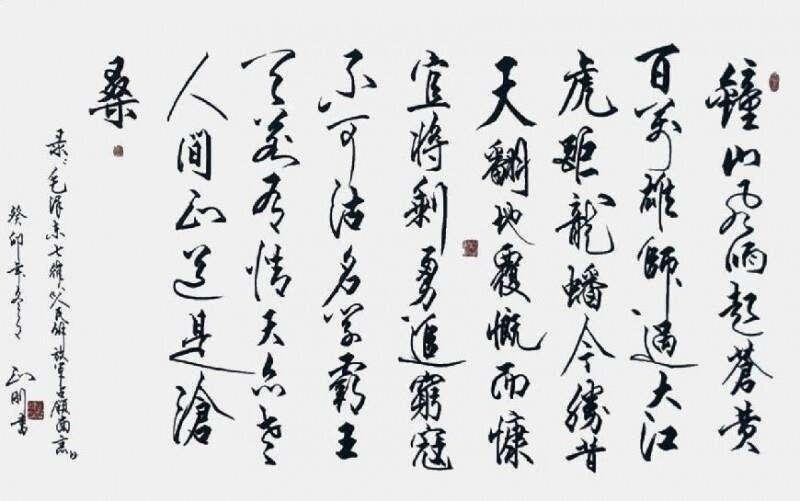 鐘山風雨起蒼黄
百萬雄師過大江
虎距龍蟠今勝昔
天翻地覆慨而慷
宜將剩勇追窮寇
不可沽名學霸王
天若有情天亦老
人間正道是滄
桑
录毛泽东七律人民解放軍占領南京
癸卯年冬月 正明書